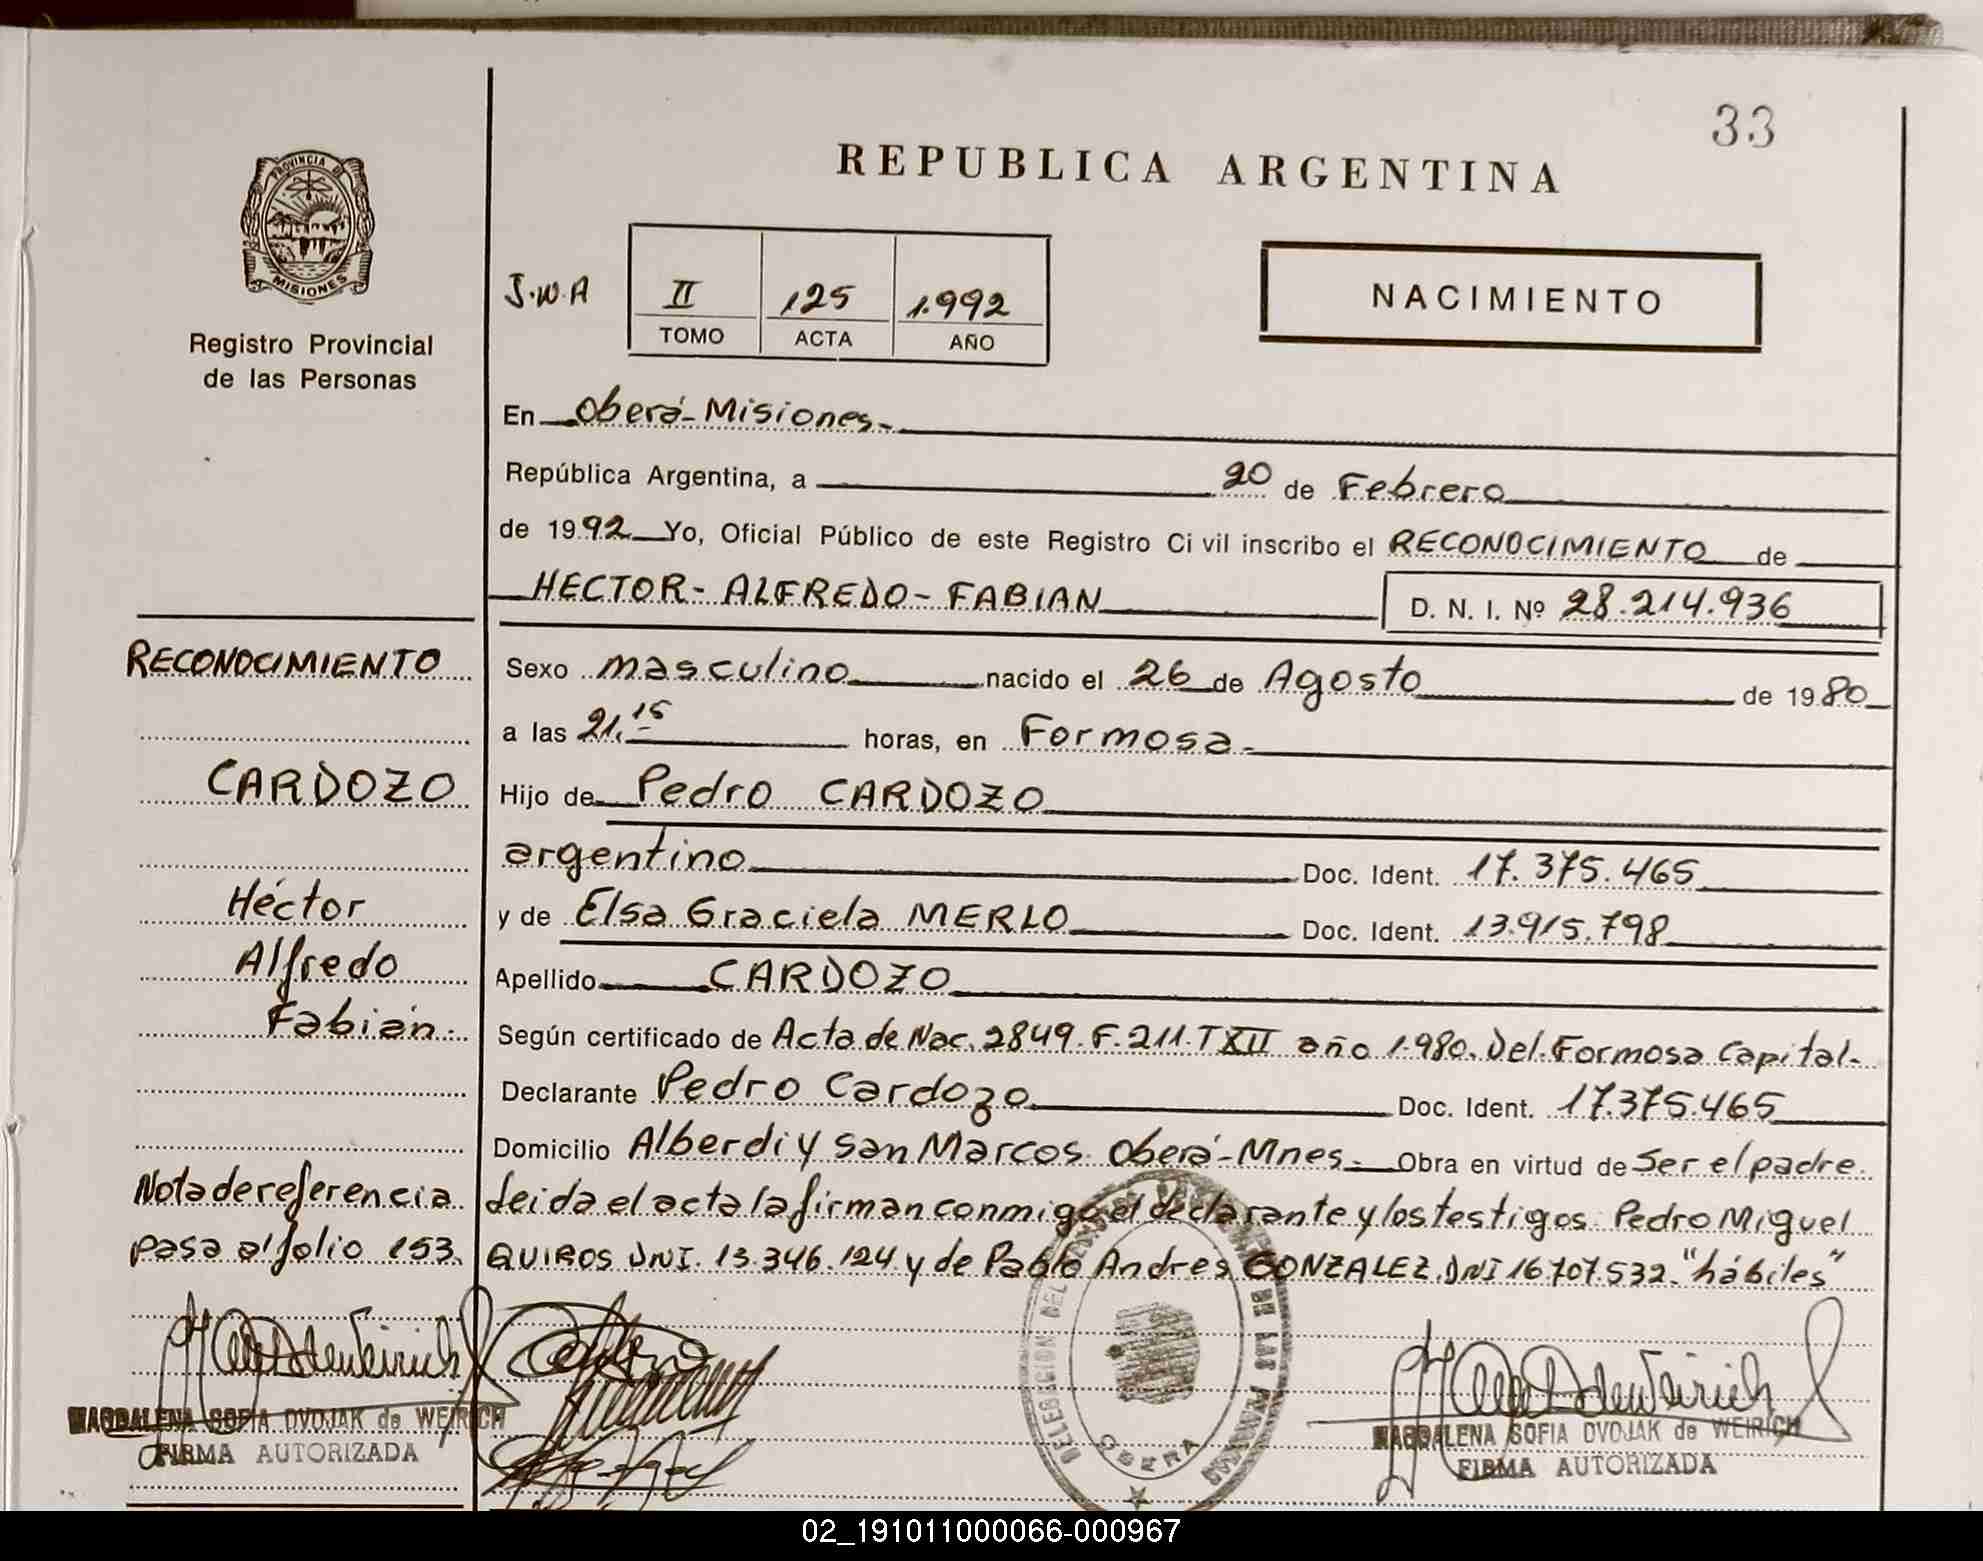 33
REPUBLICA ARGENTINA
PROVINCIA DE
MISIONES
Registro Provincial
de las Personas
J.W.A
II 125 1.992
TOMO ACTA AÑO
NACIMIENTO
En Oberá-Misiones-
República Argentina, a 20 de Febrero
de 1992 Yo, Oficial Público de este Registro Ci vil inscribo el RECONOCIMIENTO de
HECTOR-ALFREDO-FABIAN D. N. I. Nº 28.214.936
Sexo masculino nacido el 26 de Agosto de 1980
a las 21.15 horas, en Formosa-
Hijo de Pedro CARDOZO
argentino Doc. Ident. 17.375.465
y de Elsa Graciela MERLO Doc. Ident. 13.915.798
Apellido CARDOZO
Según certificado de Acta de Nac. 2849.F.211.TXII año 1.980. Del.Formosa Capital-
Declarante Pedro Cardozo Doc. Ident. 17.375.465
Domicilio Alberdi y San Marcos Oberá-Mnes- Obra en virtud de Ser el padre.
Leida el acta la firman conmigo el declarante y los testigos Pedro Miguel
QUIROS DNI. 13.346.124 y de Pablo Andres GONZALEZ. DNI 16707.532. "hábiles"
RECONOCIMIENTO
CARDOZO
Héctor
Alfredo
Fabián.
Nota de referencia
pasa al folio 153.
MAGDALENA SOFIA DVOJAK de WEIRICH
FIRMA AUTORIZADA
OBERA
MAGDALENA SOFIA DVOJAK de WEIRICH
FIRMA AUTORIZADA
02_191011000066-000967